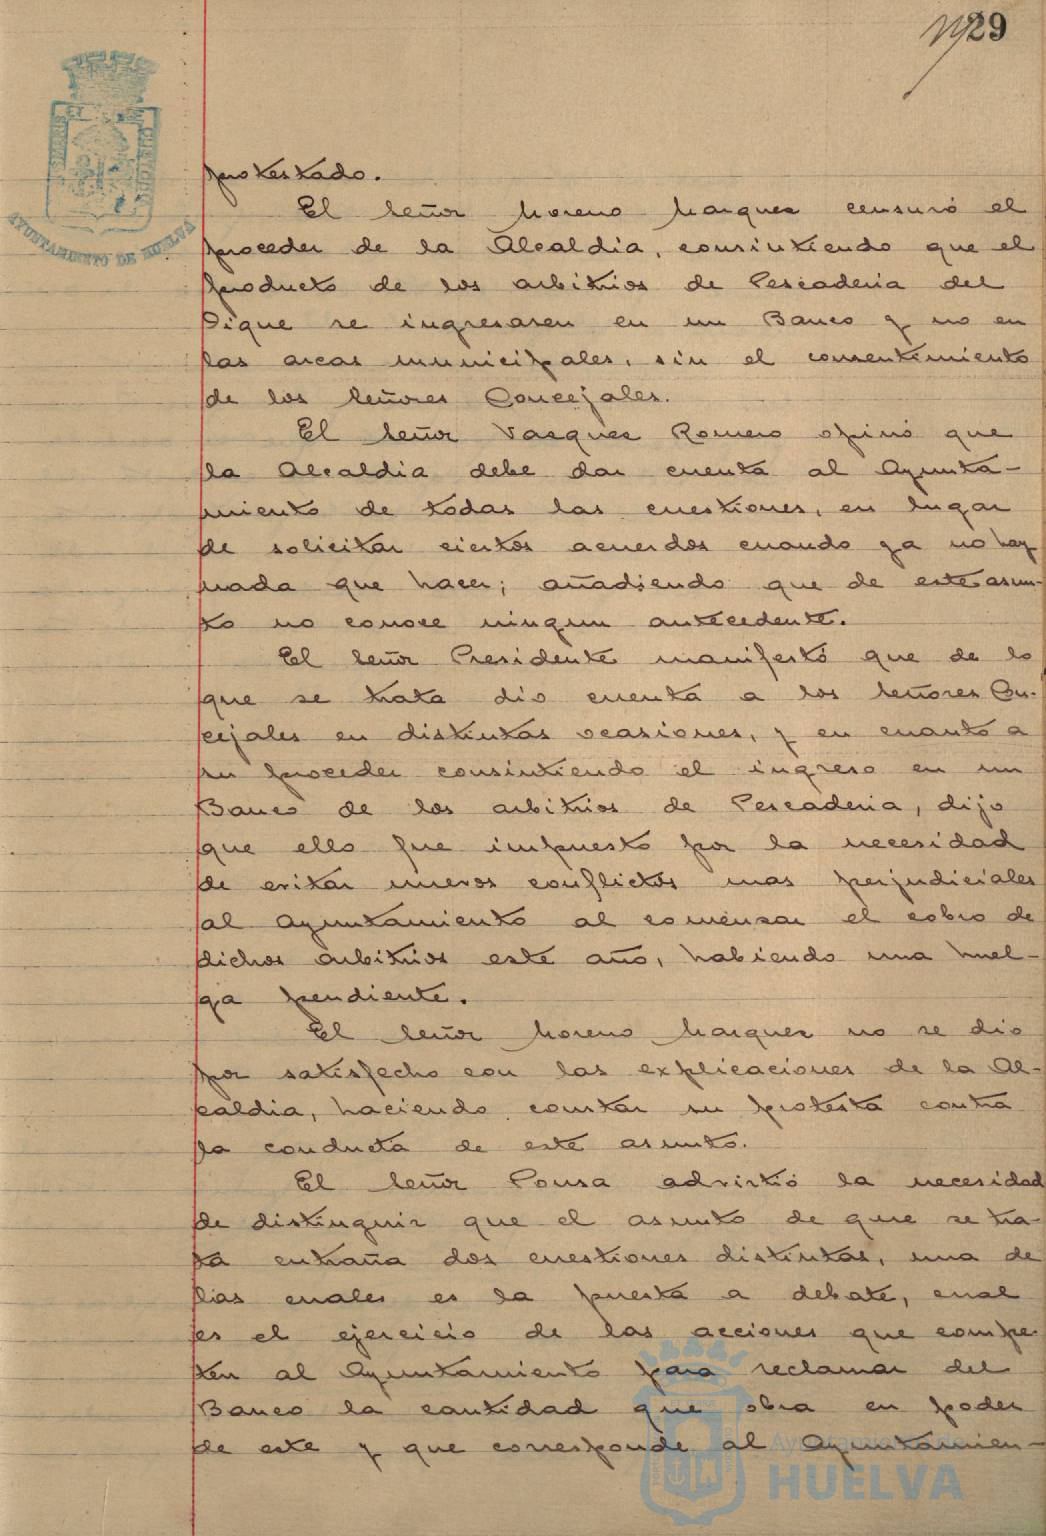 29
AYUNTAMIENTO DE HUELVA
protestado.
El Señor Moreno Marquez censuró el
proceder de la Alcaldia, consintiendo que el
producto de los arbitrios de Pescaderia del
Dique se ingresaren en un Banco y no en
las arcas municipales, sin el consentimiento
de los Señores Concejales.
El Señor Vazquez Romero opinó que
la Alcaldia debe dar cuenta al Ayunta-
miento de todas las cuestiones, en lugar
de solicitar ciertos acuerdos cuando ya no hay
nada que hacer; añadiendo que de este asun-
to no conoce ningun antecedente.
El Señor Presidente manifestó que de lo
que se trata dio cuenta a los Señores Con-
cejales en distintas ocasiones, y en cuanto a
su proceder consintiendo el ingreso en un
Banco de los arbitrios de Pescaderia, dijo
que ello fue impuesto por la necesidad
de evitar nuevos conflictos mas perjudiciales
al Ayuntamiento al comenzar el cobro de
dichos arbitrios este año, habiendo una huel-
ga pendiente.
El Señor Moreno Marquez no se dio
por satisfecho con las explicaciones de la Al-
caldia, haciendo constar su protesta contra
la conducta de este asunto.
El Señor Pousa advirtió la necesidad
de distinguir que el asunto de que se tra-
ta entraña dos cuestiones distintas, una de
las cuales es la puesta a debate, cual
es el ejercicio de las acciones que compe-
ten al Ayuntamiento para reclamar del
Banco la cantidad que obra en poder
de este y que corresponde al Ayuntamien-
Ayuntamiento de
HUELVA